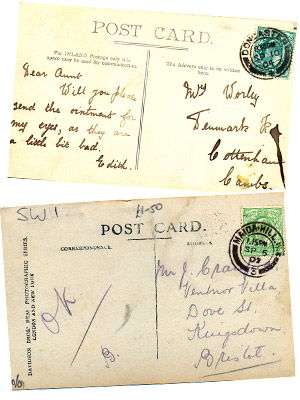 POST CARD.
For INLAND Postage only this space may be used for communication.
The Address only to be written here.
DONCASTER
Dear Aunt
Will you please
send the ointment for
my eyes, as they are
a little bit bad.
Edith.
Mrs Worby
Denmark
Cottenham
Cambs.
SW1
£1-50
POST CARD.
CORRESPONDENCE.
ADDRESS.
DAVIDSON BROS' REAL PHOTOGRAPHIC SERIES.
LONDON AND NEW YORK
MAIDA-HILL.
7.15PM
SP 5
07
OK
B.
Mr J.
Ventnor Villa
Dove St.
Kingsdown
Bristol.